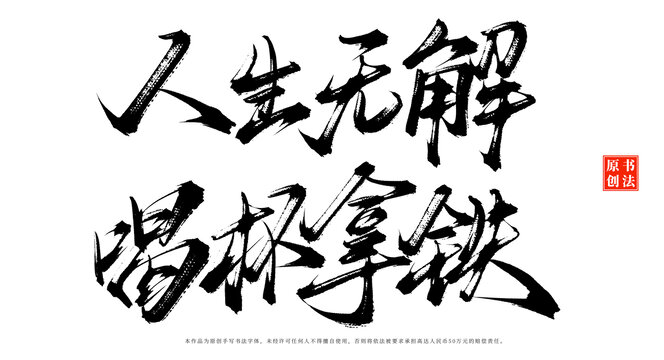 人生无解
喝杯拿铁
原创
书法
本作品为原创手写书法字体，未经许可任何人不得擅自使用，否则将依法被要求承担高达人民币50万元的赔偿责任。